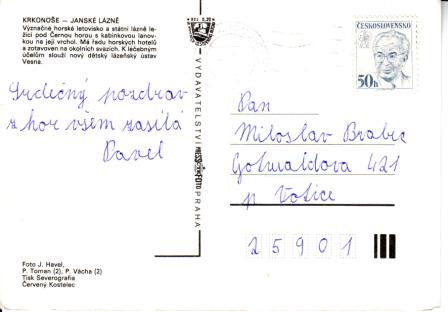 KRKONOŠE — JANSKÉ LÁZNĚ
Význačné horské letovisko a státní lázně le-
žící pod Černou horou s kabinkovou lanov-
kou na její vrchol. Má řadu horských hotelů
a zotavoven na okolních svazích. K léčebným
účelům slouží nový dětský lázeňský ústav
Vesna.
Srdečný pozdrav
z hor všem zasílá
Pavel
Foto J. Havel,
P. Toman (2), P. Vácha (2)
Tisk Severografia
Červený Kostelec
VYDAVATELSTVÍ PRESSFOTO PRAHA
ČESKOSLOVENSKO
50h
Pan
Miloslav Brabec
Gottwaldova 421
p. Votice
25901